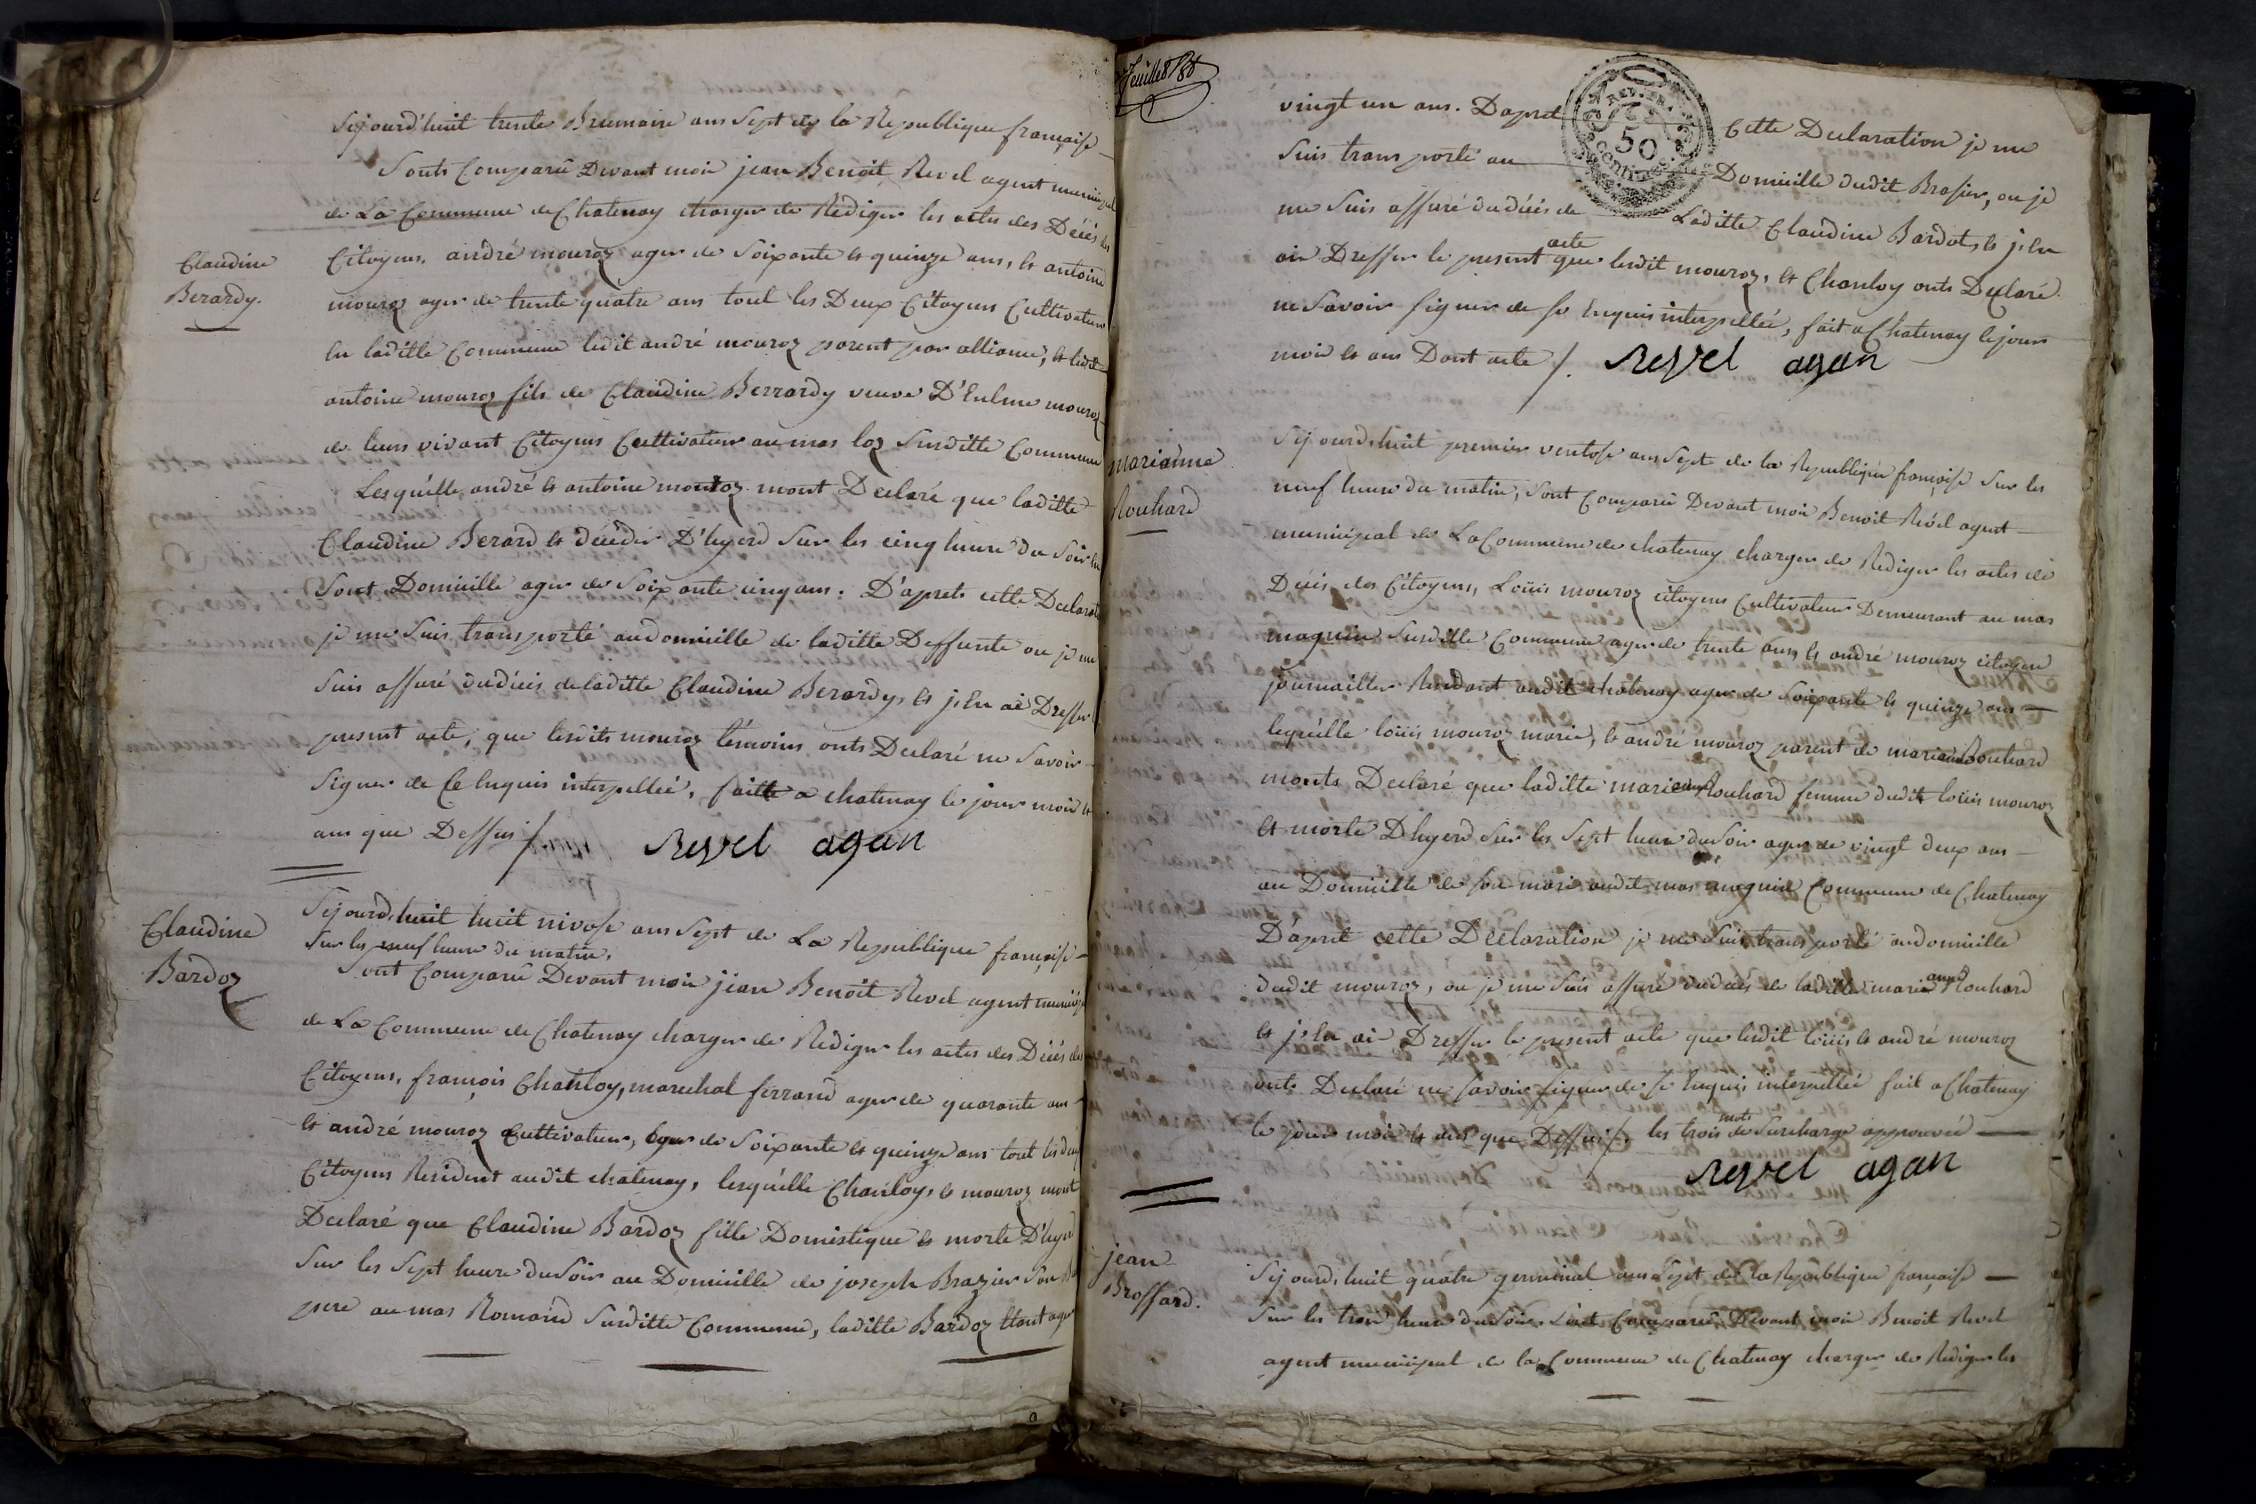 Sejourd'huit trente Brumaire ans Sept de la Republique françaisse
Sonts Comparû Devant moi jean Benoit Revel agent municipal
de La Commune de Chatenay charger de Rediger les actes des Décés des
Citoyens. andré mouroz ager de Soixante et quinze ans, et antoine
Claudine
Berardy.
mouroz ager de trente quatre ans tout les Deux Citoyens Cultivateur
en laditte Commune ledit andré mouroz parent par alliance, et ledit
antoine mouroz fils de Claudine Berrardy veuve D' mouroz
de leurs vivant Citoyens Cultivateur au mas loz Surditte Commune
Lesquélle andré et antoine mouroz mont Declaré que laditte
Claudine Berard et décéder D'hyerd Sur les cinq heure du Soir en
Sont Domicille ager de Soixante cinq ans. D'aprets cette Declarat
je me Suis transporté audomicille de laditte Deffunte ou je me
Suis assuré dudécis de laditte Claudine Berardy, et j'en ai Dresser
present acte, que lesdits mouroz témoins onts Declaré ne Savoir
Signer de Ce Enquis interpellée, faitte a chatenay le jour mois et
ans que Dessus /. Revel agan
Claudine
Bardoz
Sejourd'huit huit nivose ans Sept de La Republique françaisse
Sur les neuf heure du matin,
Sont Comparû Devant moi jean Benoit Revel agent municip
de La Commune de Chatenay charger de Rediger les actes des Décés des
Citoyens, françois Chanloy, marechal ferrand ager de quarante ans
et andré mouroz Cultivateur, ager de Soixante et quinze ans tout les deux
Citoyens Resident audit chatenay, lesquélle Chanloy, et mouroz mont
Declaré que Claudine Bardoz fille Domestique et morte D'hyerd
Sur les Sept heure du Soir au Domicille de joseph Brazier Son
pere au mas Romand Surditte Commune, laditte Bardoz Etant ager
feuillet 85
vingt un ans. D'apret cette Declaration je me
RÉP. FRA.
50
CENTIMES
Suis transporté au Domicille dudit Brasier, ou je
me Suis assuré dudécis de Laditte Claudine Bardot, et j'en
ai Dresser le present acte que lesdit mouroz, et Chanloy onts Declaré
ne Savoir Signer de se Enquis interpellée, fait a Chatenay le jour
mois et ans Dont acte /. Revel agan
marianne
Rouhard
Sejourd'huit premier ventose ans Sept de la Republique françoise Sur les
neuf heure du matin, Sont Comparû Devant moi Benoit Revel agent
municipal de La Commune de chatenay charger de Rediger les actes de
Décis des Citoyens, Loüis mouroz citoyens Cultivateur Demeurant au mas
maquin Surditte Commune ager de trente ans et andré mouroz citoyen
journaillier Residant audit chatenay ager de Soixante et quinze ans
lequélle loüis mouroz marié, et andré mouroz parent de marianne Rouhard
monts Declaré que laditte marianne Rouhard femme dudit loüis mouroz
et morte D'hyerd Sur les Sept heure du Soir ager de vingt deux ans
au Domicille de son mari audit mas maquin Commune de Chatenay
D'apret cette Declaration je me Suis transporté audomicille
dudit mouroz, ou je me Suis assuré dudécés de laditte marianne Rouhard
et j'en ai Dresser le present acte que lesdit loüis et andré mouroz
onts Declaré ne Savoir Signer de se Enquis interpellée fait a Chatenay
le jour mois et ans que Dessus /. les trois mots de Surcharge approuvée
Revel agan
jean
Brossard.
Sejourd'huit quatre germinal ans Sept de la Republique françaisse
Sur les trois heure du Soir. Sont Comparû Devant moi Benoit Revel
agent municipal de la Commune de Chatenay charger de Rediger les